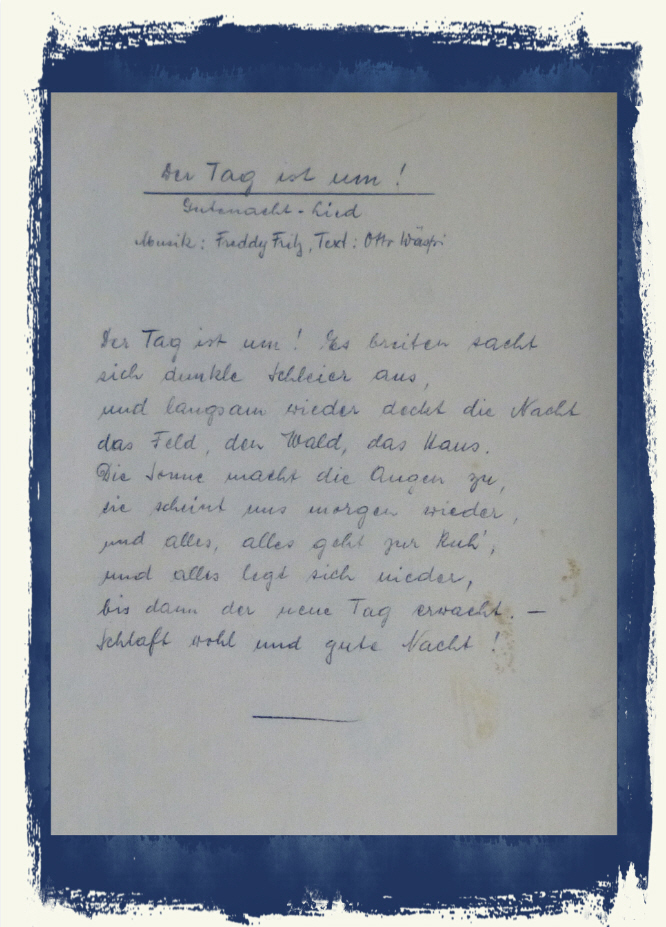 Der Tag ist um!
Gutenacht-Lied
Musik: Freddy Fritz, Text: Otto
Der Tag ist um! Es breiten sacht
sich dunkle Schleier aus,
und langsam wieder deckt die Nacht
das Feld, den Wald, das Haus.
Die Sonne macht die Augen zu,
sie scheint uns morgen wieder,
und alles, alles geht zur Ruh',
und alles legt sich nieder,
bis dann der neue Tag erwacht. –
Schlaft wohl und gute Nacht!